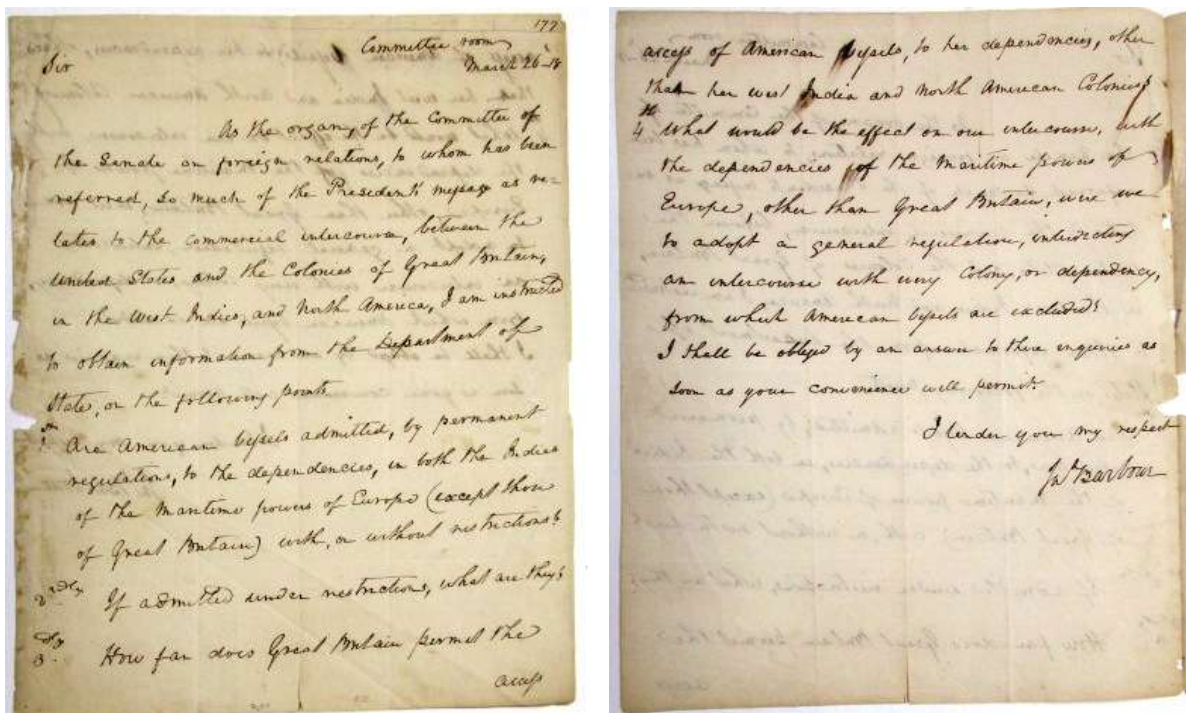 177
Committee room
Sir March 26-18
As the organ, of the Committee of
the Senate on foreign relations, to whom has been
referred, so much of the President's message as re-
lates to the commercial intercourse, between the
United States and the Colonies of Great Britain,
in the West Indies, and North America, I am instructed
to obtain information from the Department of
State, on the following points.
1st Are American vessels admitted, by permanent
regulations, to the dependencies, in both the Indies
of the Maritime powers of Europe (except those
of Great Britain) with, or without restrictions?
2ndly If admitted under restrictions, what are they?
3dly How far does Great Britain permit the
access
access of American vessels, to her dependencies, other
than her west India and North American Colonies?
4th What would be the effect on our intercourse, with
the dependencies of the Maritime powers of
Europe, other than Great Britain, were we
to adopt a general regulation, interdicting
an intercourse with every Colony, or dependency,
from which American vessels are excluded?
I shall be obliged by an answer to these enquiries as
soon as your convenience will permit.
I tender you my respect
Js Barbour